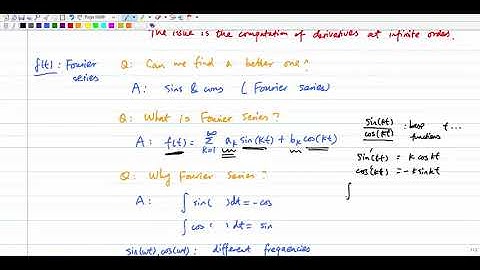 The issue is the computation of derivatives at infinite order.
f(t) : Fourier series
Q: Can we find a better one?
A: sins & coss ( Fourier series)
Q: What is Fourier Series?
A: f(t) = ∑_{k=1}^{∞} a_k sin(kt) + b_k cos(kt)
sin(kt)
cos(kt) : base functions
t...
sin'(kt) = k cos kt
cos'(kt) = -k sin kt
∫
Q: Why Fourier Series?
A: ∫ sin( )dt = -cos
∫ cos( )dt = sin
sin(wt), cos(wt) : different frequencies